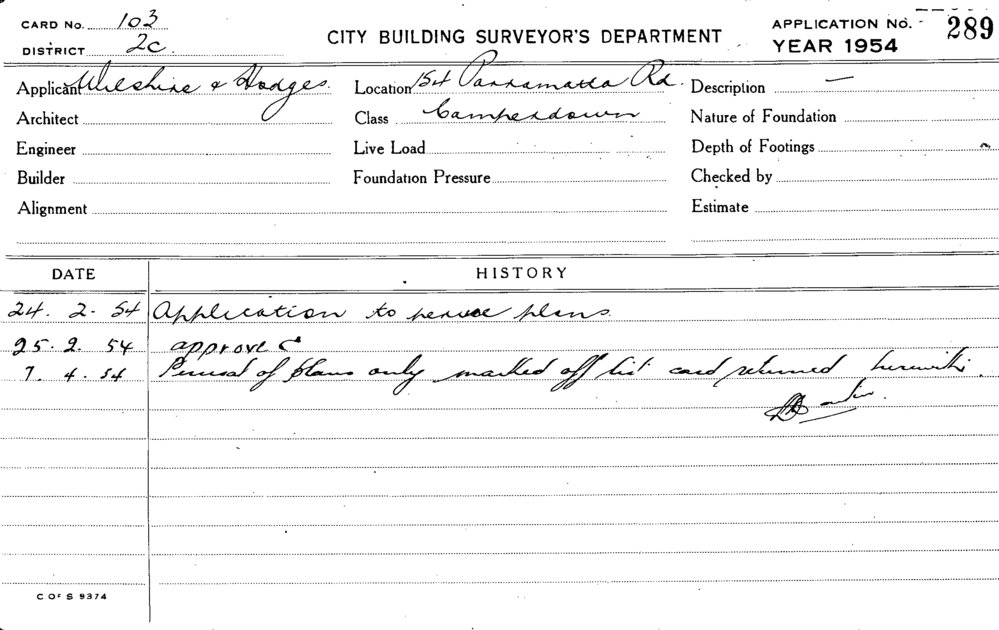 CARD No. 103
DISTRICT 2c.
CITY BUILDING SURVEYOR'S DEPARTMENT
APPLICATION NO. 289
YEAR 1954
Applicant Wilshire & Hodges. Location 154 Parramatta Rd. Description —
Architect Class Camperdown Nature of Foundation
Engineer Live Load Depth of Footings
Builder Foundation Pressure Checked by
Alignment Estimate
DATE HISTORY
24. 2. 54 Application to peruse plans.
25. 2. 54 approved
7. 4. 54 Perusal of plans only marked off list card returned herewith.
C OF S 9374